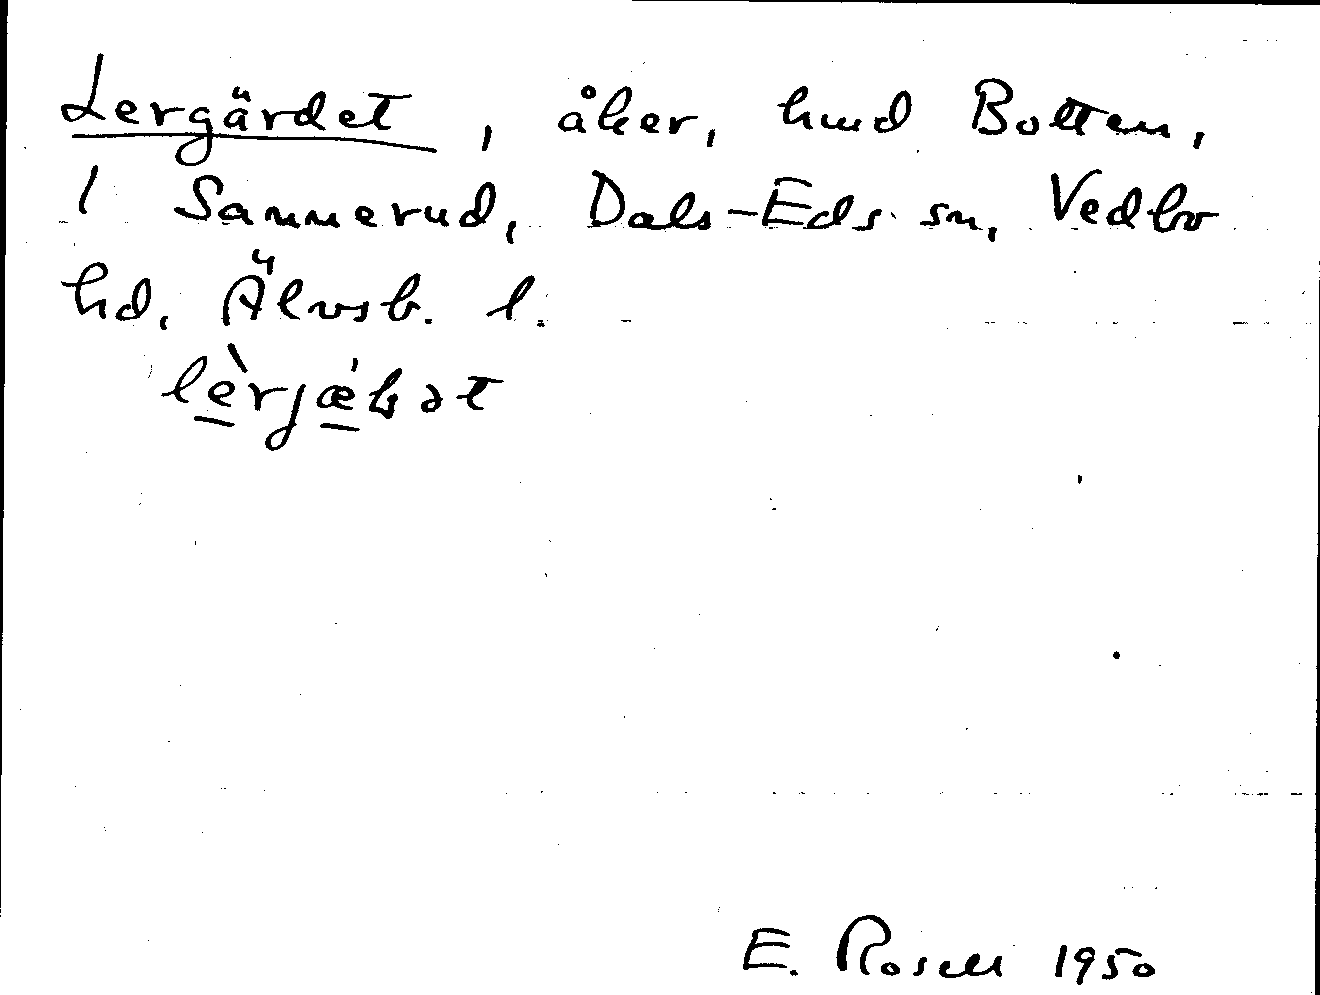 Lergärdet, åker, hmd Botten,
1 Sannerud, Dals-Eds sn, Vedbo
hd, Älvsb. l.
E. Rosell 1950